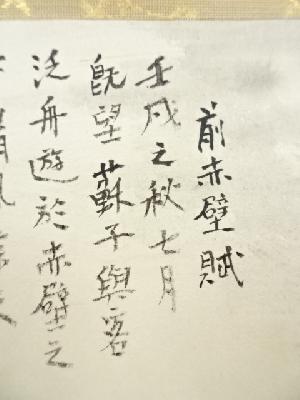 前赤壁賦
壬戌之秋七月
既望蘇子與客
泛舟遊於赤壁之
清風徐來